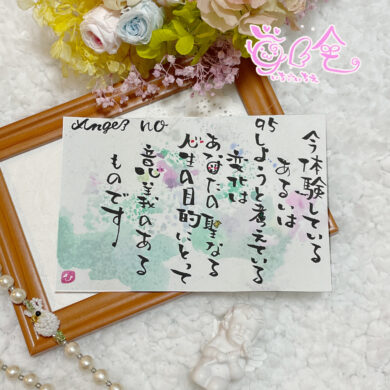 Angel no
95
今体験している
あるいは
しようと考えている
変化は
あなたの聖なる
人生の目的にとって
意義のある
ものです